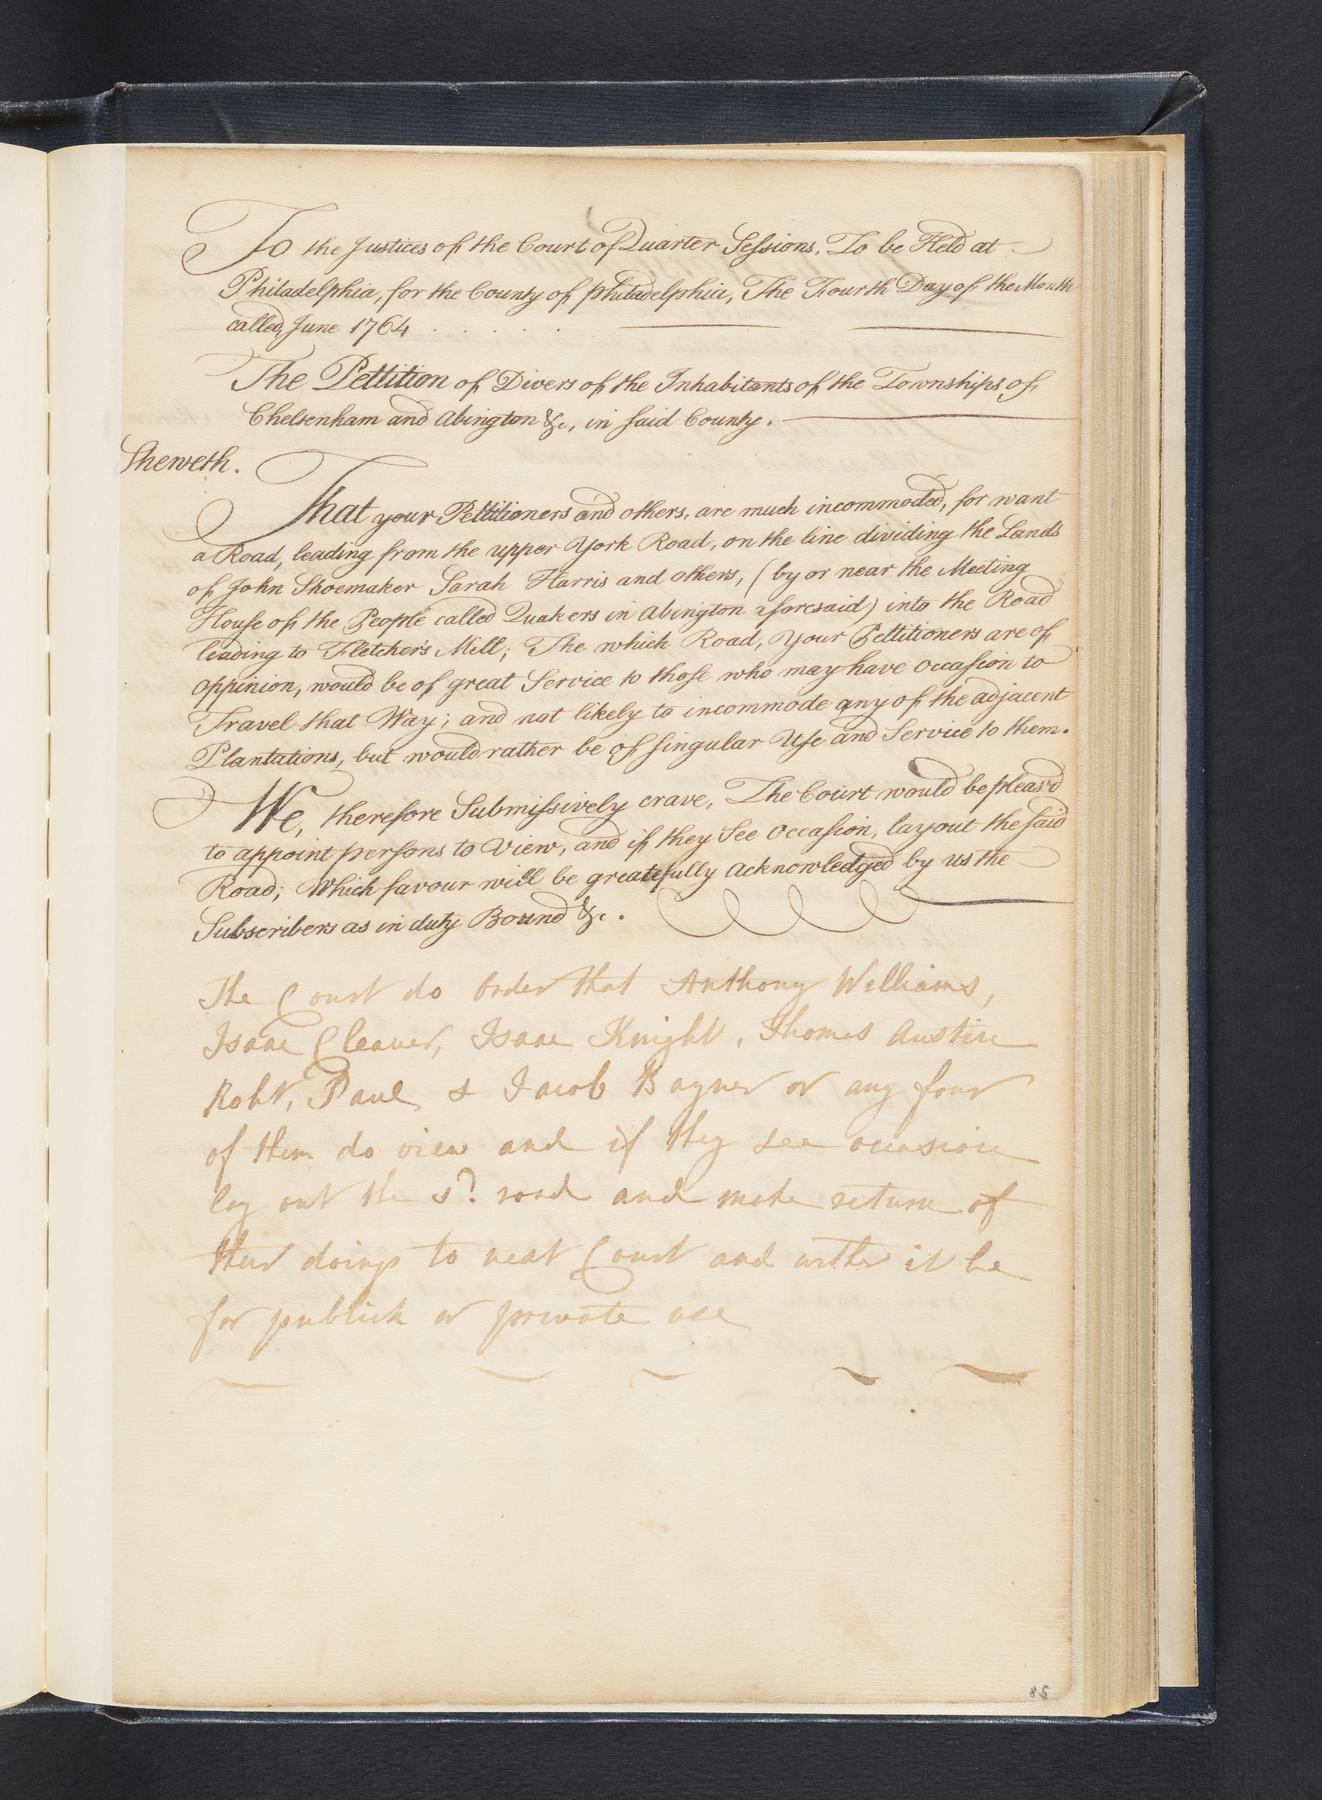 To the Justices of the Court of Quarter Sessions, To be Held at
Philadelphia, for the County of Philadelphia, The Fourth Day of the Month
called, June 1764
The Pettition of Divers of the Inhabitants of the Townships of
Cheltenham and Abington &c, in said County.
Sheweth.
That your Pettitioners and others, are much incommoded, for want
a Road, leading from the upper York Road, on the line dividing the Lands
of John Shoemaker Sarah Harris and others, (by or near the Meeting
House of the People called Quakers in Abington aforesaid) into the Road
leading to Fletcher's Mill; The which Road, your Pettitioners are of
oppinion, would be of great Service to those who may have occasion to
Travel that Way; and not likely to incommode any of the adjacent
Plantations, but would rather be of singular Use and Service to them.
We, therefore Submissively crave, The Court would be pleas'd
to appoint persons to view, and if they See occasion, lay out the said
Road; Which favour will be greatefully acknowledged by us the
Subscribers as in duty Bound &c.
The Court do order that Anthony Williams,
Isaac Cleaver, Isaac Knight, Thomas Austin
Robt. Paul & Jacob Wagner or any four
of them do view and if they see occasion
lay out the sd. road and make return of
their doings to next Court and wither it be
for publick or private use
85